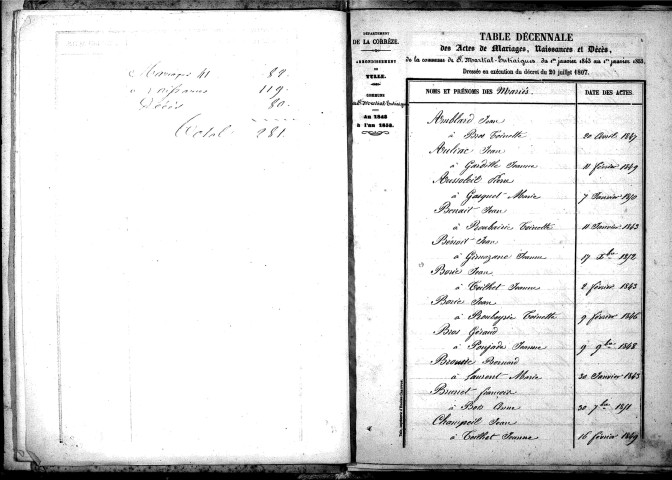 Mariages 41 82.
Naissances 119.
Décès 80.
Total 281.
DÉPARTEMENT
DE LA CORRÈZE.
ARRONDISSEMENT
DE
TULLE.
COMMUNE
de St Martial-Entraigues
An 1843
à l'an 1853.
TABLE DÉCENNALE
des Actes de Mariages, Naissances et Décès,
de la commune de St Martial-Entraigues, du 1er janvier 1843 au 1er janvier 1853.
Dressée en exécution du décret du 20 juillet 1807.
NOMS ET PRÉNOMS DES Mariés. DATE DES ACTES.
Amblard Jean
à Bros Toinette 20 Avril 1847
Jean
à Jeanne 11 février 1849
à Gasquet Marie 7 Janvier 1850
Benait Jean
à Toinette 11 Janvier 1843
Benoit Jean
à Jeanne 17 Xbre 1852
Borie Jean
à Teilhet Jeanne 2 février 1843
Borie Jean
à Toinette 9 février 1846
Bros Géraud
à Poujade Jeanne 9 9bre 1848
Brousse Bernard
à Laurent Marie 30 Janvier 1843
Brunet françois
à Bois Anne 30 7bre 1851
Champeil Jean
à Teilhet Jeanne 16 février 1849